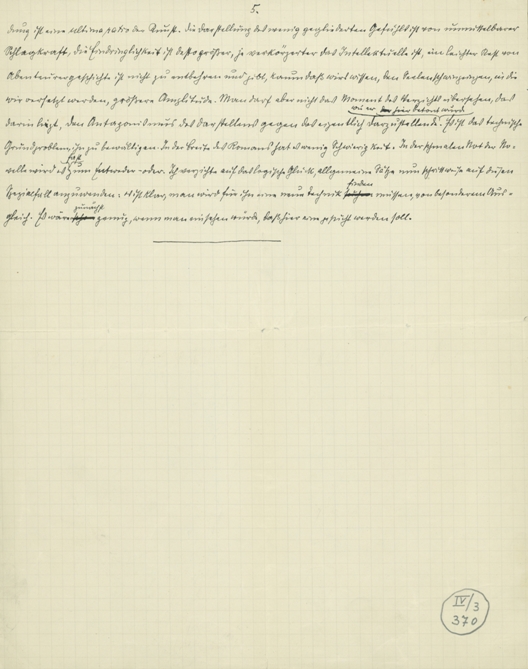 5.
dung ist eine ultima ratio der Kunst. Die Darstellung des wenig gegliederten Gefühls ist von unmittelbarer
Schlagkraft, die Eindringlichkeit ist desto größer, je verkürzter das Intellektuelle ist, ein leichter Rest von
Abenteurergeschichte ist nicht zu entbehren und gibt, kaum daß wir's wissen, den Seelenschwingungen, in die
wir versetzt werden, größere Amplitude. Man darf aber nicht das Moment des Verzichts übersehen, das
wie er hier betont wird
darin liegt, den Antagonismus des Darstellens gegen das eigentlich Darzustellende. Es ist das technische
Grundproblem, ihn zu bewältigen. In der Breite des Romans hat es wenig Schwierigkeit. In der schmalen Form der No-
fast
velle wird es zum Entweder-oder. Ich verzichte auf das logische Glück, allgemeine Sätze nun schrittweise auf diesen
finden
Spezialfall anzuwenden; es ist klar, man wird für ihn eine neue Technik müssen, von besonderem Aus-
zunächst
gleich. Es wäre genug, wenn man einsehen würde, daß hier was gesucht werden soll.
IV/3
370